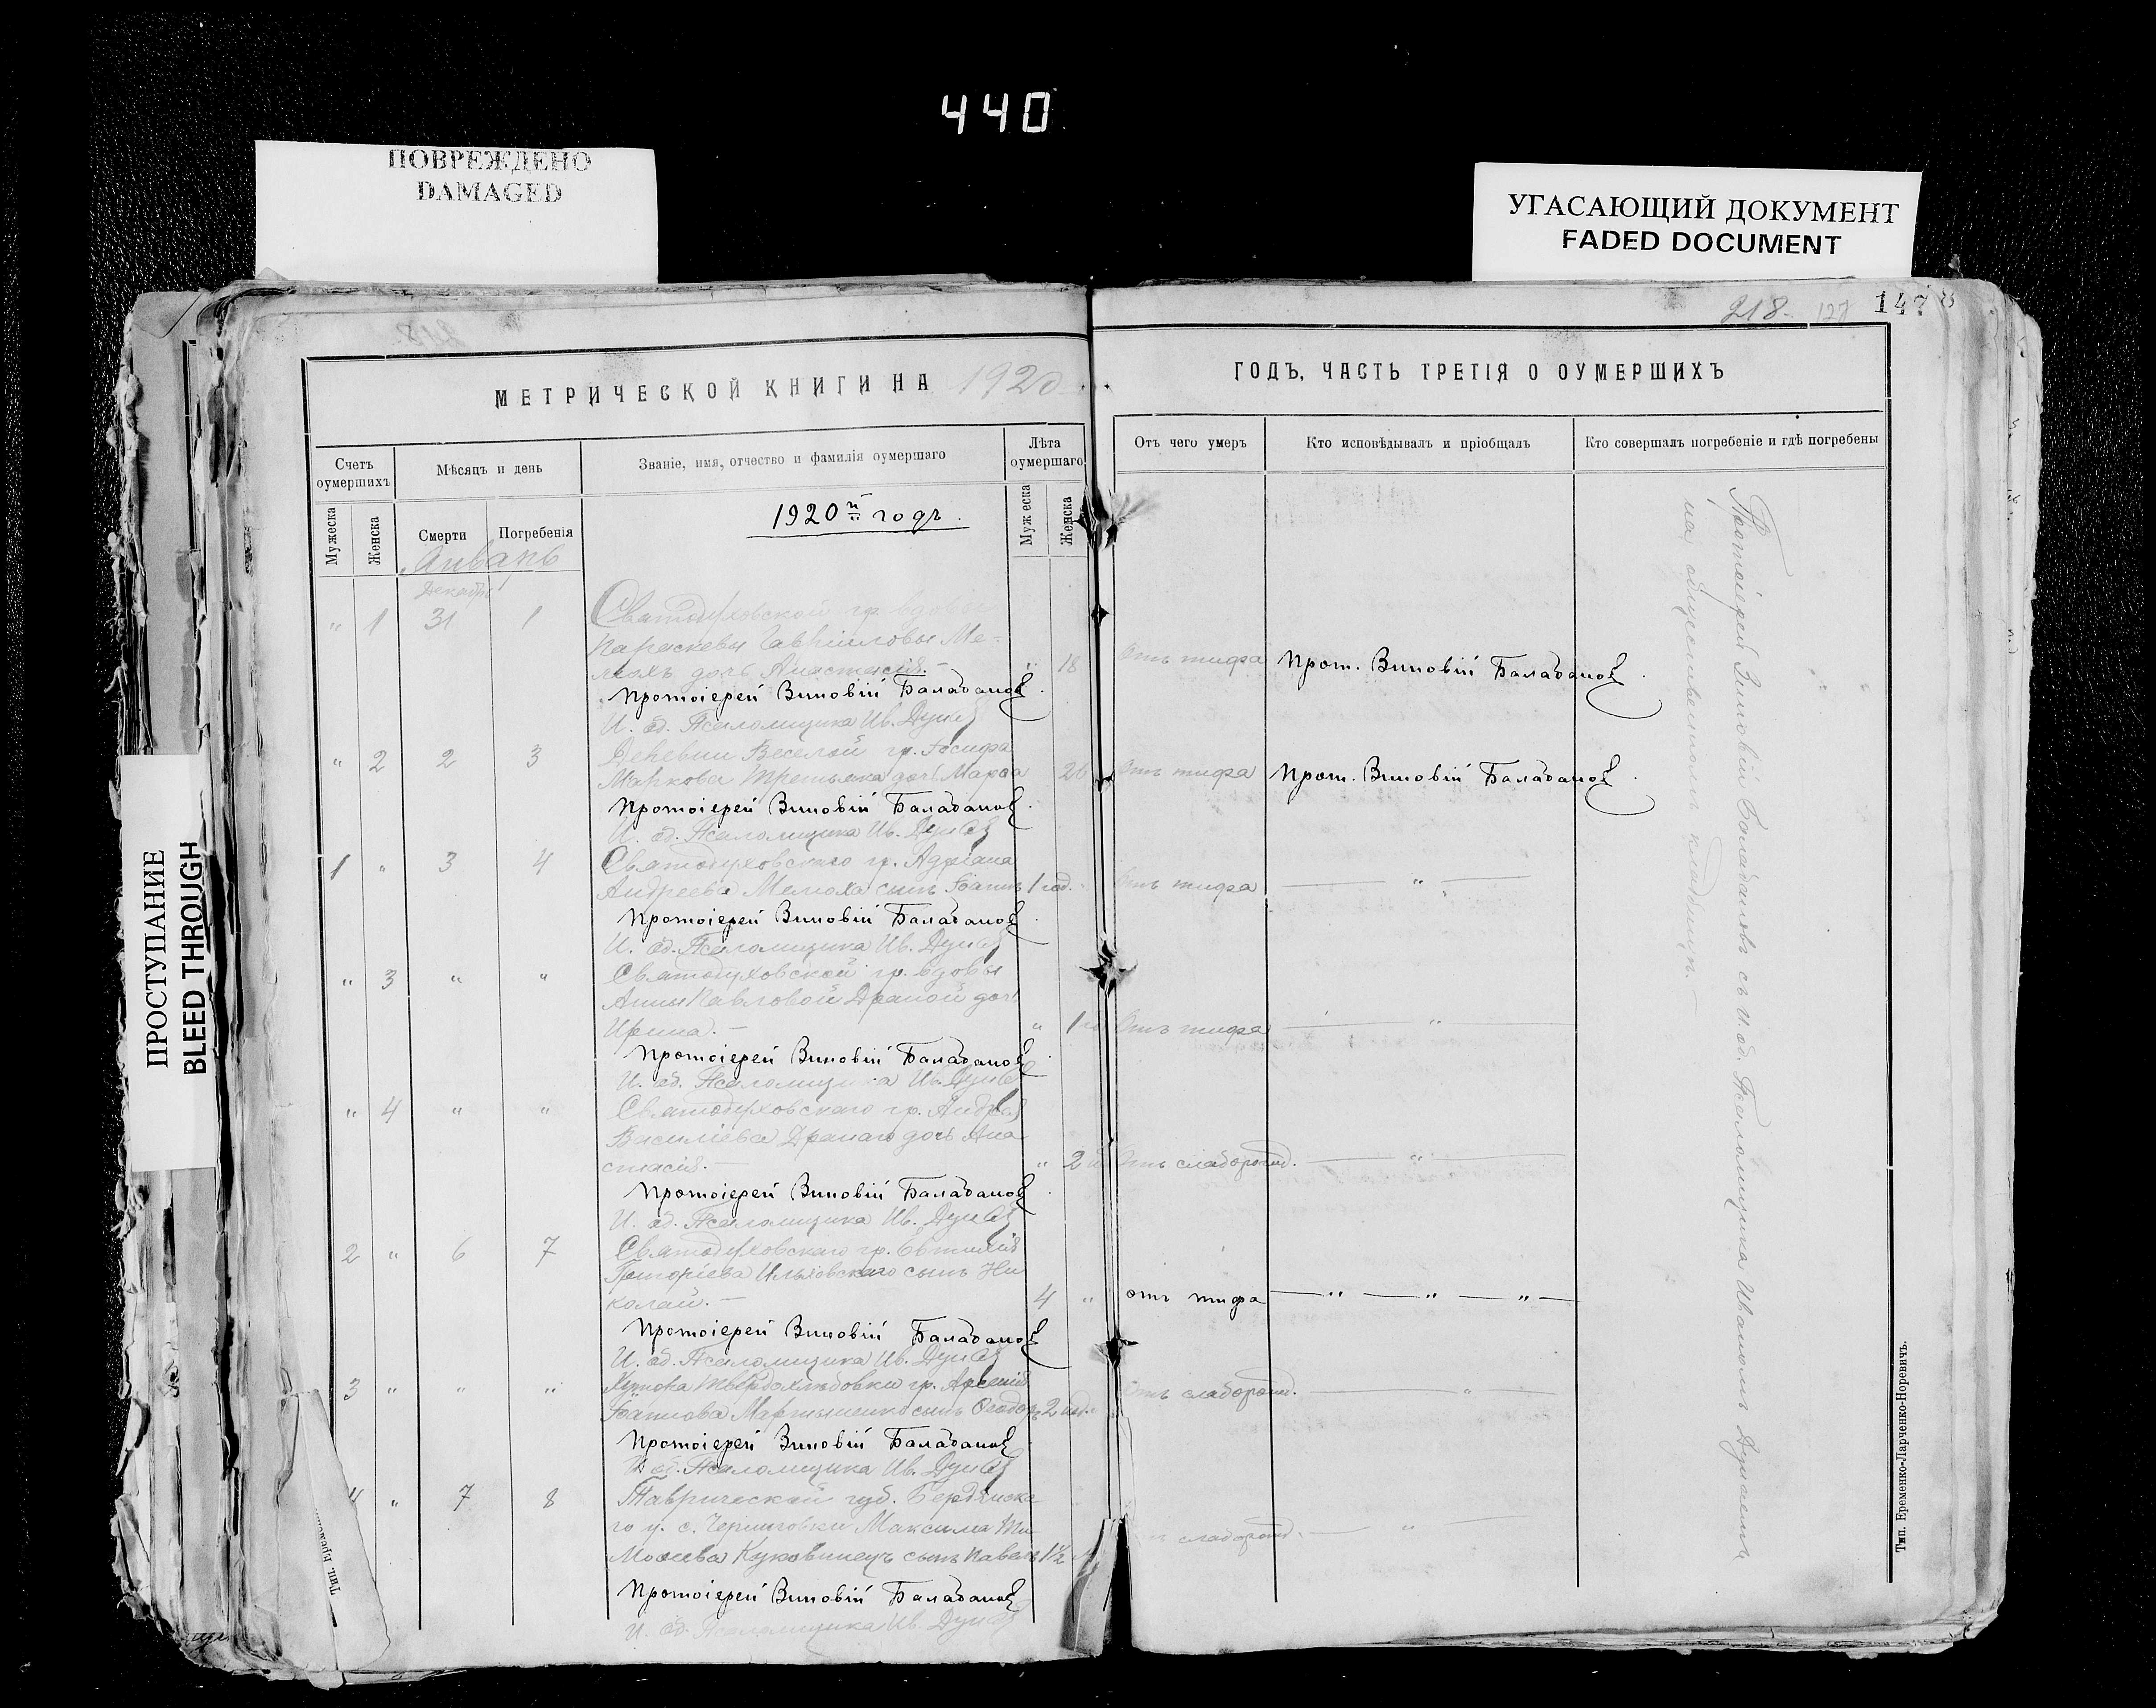 440
ПОВРЕЖДЕНО
DAMAGED
УГАСАЮЩИЙ ДОКУМЕНТ
FADED DOCUMENT
ПРОСТУПАНИЕ
BLEED THROUGH
218. 127 147
МЕТРИЧЕСКОЙ КНИГИ НА 1920
ГОДЪ, ЧАСТЬ ТРЕТІЯ О ОУМЕРШИХЪ
Счетъ оумершихъ
Мѣсяцъ и день
Званіе, имя, отчество и фамилія оумершаго
Лѣта оумершаго
Отъ чего умеръ
Кто исповѣдывалъ и пріобщалъ
Кто совершалъ погребеніе и гдѣ погребены
Мужеска
Женска
Смерти
Погребенія
Мужеска
Женска
1920 й годъ.
Январь
Декабрь
" 1 31 1 Святодуховской гр. вдовы
Параскевы Гавріиловы Ме-
дочь Анастасія. — " 18 Отъ тифа Прот. Зиновій Балабановъ.
Протоіерей Зиновій Балабановъ.
И. об. Псаломщика Ив. Дунаев
" 2 2 3 Деревни Веселой гр. Іосифа
Маркова Третьяка дочь Марѳа 26 Отъ тифа Прот. Зиновій Балабановъ.
Протоіерей Зиновій Балабановъ.
И. об. Псаломщика Ив. Дунаев
1 " 3 4 Святодуховскаго гр. Адріана
Андреева Мелюха сынъ Іоаннъ 1 год. Отъ тифа — " —
Протоіерей Зиновій Балабановъ.
И. об. Псаломщика Ив. Дунаев
" 3 " " Святодуховской гр. вдовы
Анны Павловой Драной дочь
Ирина. — " 1 Отъ тифа — " —
Протоіерей Зиновій Балабановъ.
И. об. Псаломщика Ив. Дунаев
" 4 " " Святодуховскаго гр. Андрея
Василіева Dранаго дочь Ана
стасія. — " 2 Отъ слаборожд. — " —
Протоіерей Зиновій Балабановъ.
И. об. Псаломщика Ив. Дунаев
2 " 6 7 Святодуховскаго гр. Евтихія
Григоріева Ильховскаго сынъ Ни
колай. — 4 " отъ тифа — " — " — " —
Протоіерей Зиновій Балабановъ
И. об. Псаломщика Ив. Дунаев
3 " " " Хутора Твердохлѣбовки гр. Арсенія
Іоаннова Мартыненко сынъ Ѳеодоръ 2 нед. Отъ слаборожд. — " —
Протоіерей Зиновій Балабановъ
И. об. Псаломщика Ив. Дунаев
4 " 7 8 Таврической губ. Бердянска
го у. с. Черниговки Максима Ти
моѳеева Куковинецъ сынъ Павелъ 1½ слаборожд. — " —
Протоіерей Зиновій Балабановъ
И. об. Псаломщика Ив. Дунаев
Протоіерей Зиновій Балабановъ съ И. об. Псаломщика Иваномъ Дунаевымъ
на общественномъ кладбищѣ. —
Тип. Еременко-Ларченко-Норевичъ.
Тип. Еремен